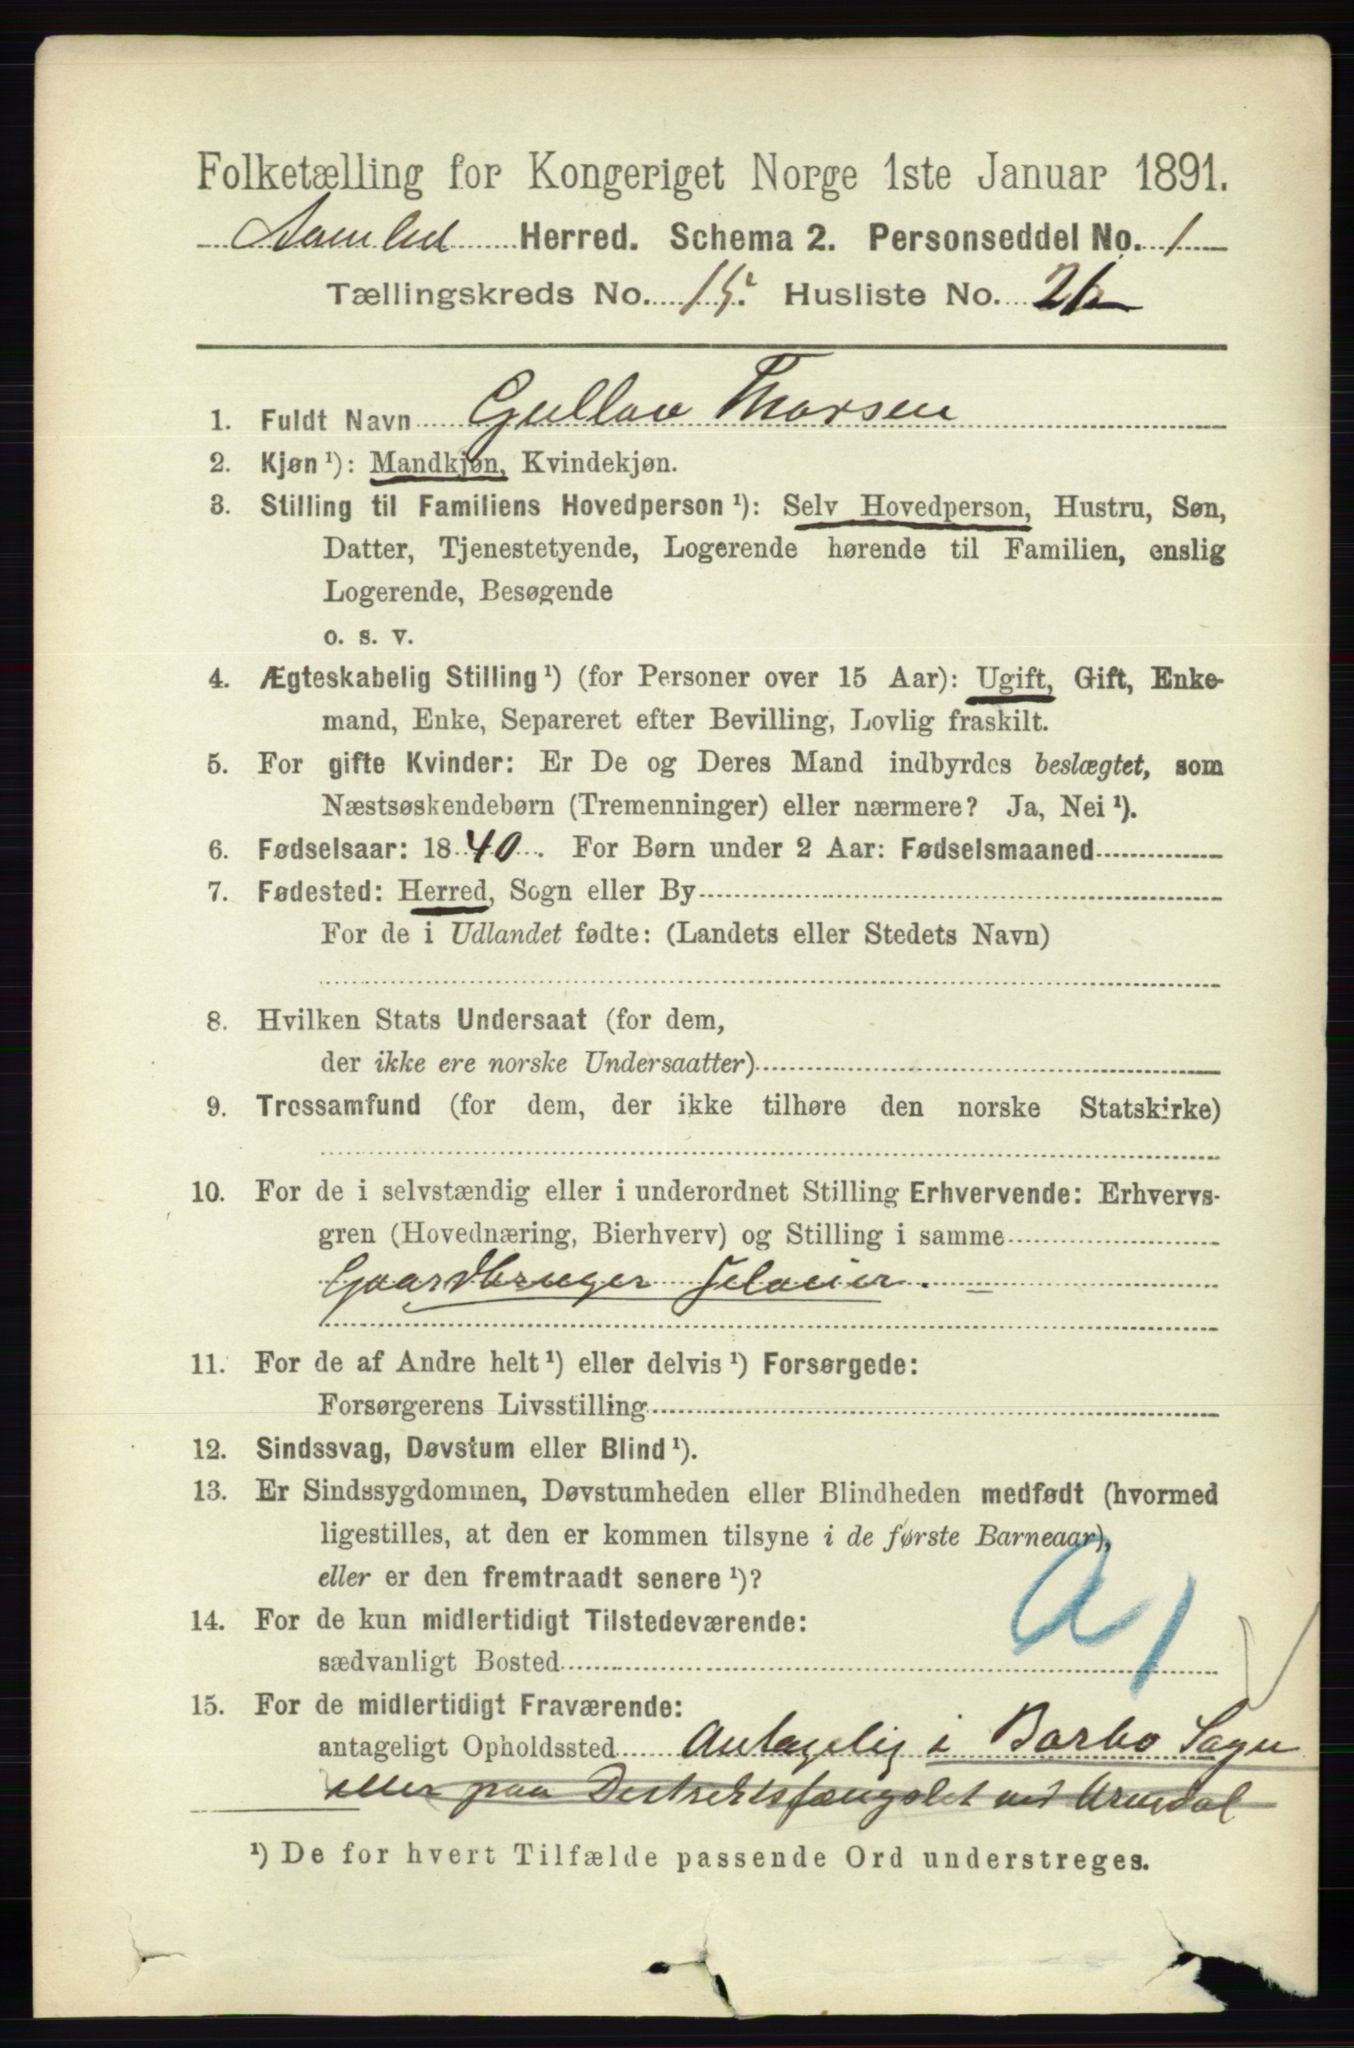 Folketælling for Kongeriget Norge 1ste Januar 1891.
Aamlid Herred. Schema 2. Personseddel No. 1
Tællingskreds No. 15. Husliste No.
1. Fuldt Navn Gullov Thorsen
2. Kjøn ¹): Mandkjøn, Kvindekjøn.
3. Stilling til Familiens Hovedperson ¹): Selv Hovedperson, Hustru, Søn,
Datter, Tjenestetyende, Logerende hørende til Familien, enslig
Logerende, Besøgende
o. s. v.
4. Ægteskabelig Stilling ¹) (for Personer over 15 Aar): Ugift, Gift, Enke-
mand, Enke, Separeret efter Bevilling, Lovlig fraskilt.
5. For gifte Kvinder: Er De og Deres Mand indbyrdes beslægtet, som
Næstsøskendebørn (Tremenninger) eller nærmere? Ja, Nei ¹).
6. Fødselsaar: 1840. For Børn under 2 Aar: Fødselsmaaned
7. Fødested: Herred, Sogn eller By
For de i Udlandet fødte: (Landets eller Stedets Navn)
8. Hvilken Stats Undersaat (for dem,
der ikke ere norske Undersaatter)
9. Trossamfund (for dem, der ikke tilhøre den norske Statskirke)
10. For de i selvstændig eller i underordnet Stilling Erhvervende: Erhvervs-
gren (Hovednæring, Bierhverv) og Stilling i samme
Gaardbruger Selveier.
11. For de af Andre helt ¹) eller delvis ¹) Forsørgede:
Forsørgerens Livsstilling
12. Sindssvag, Døvstum eller Blind ¹).
13. Er Sindssygdommen, Døvstumheden eller Blindheden medfødt (hvormed
ligestilles, at den er kommen tilsyne i de første Barneaar),
eller er den fremtraadt senere ¹)?
14. For de kun midlertidigt Tilstedeværende:
sædvanligt Bosted
15. For de midlertidigt Fraværende:
antageligt Opholdssted Antagelig i Barbo Sogn
eller paa Distriktsfængslet ved Arendal
¹) De for hvert Tilfælde passende Ord understreges.